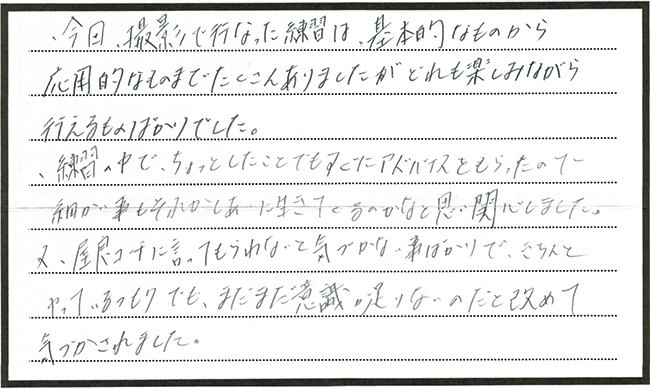 、今回、撮影で行なった練習は、基本的なものから
応用的なものまでたくさんありましたがどれも楽しみながら
行えるものばかりでした。
、練習の中で、ちょっとしたことでもすぐにアドバイスをもらったので
細かい事もそれがしあいに生きてくるのかなと思い関心しました。
又、屋良コーチに言ってもらわれないと気づかない事ばかりで、きちんと
やっているつもりでも、まだまだ意識が足りないのだと改めて
気づかされました。